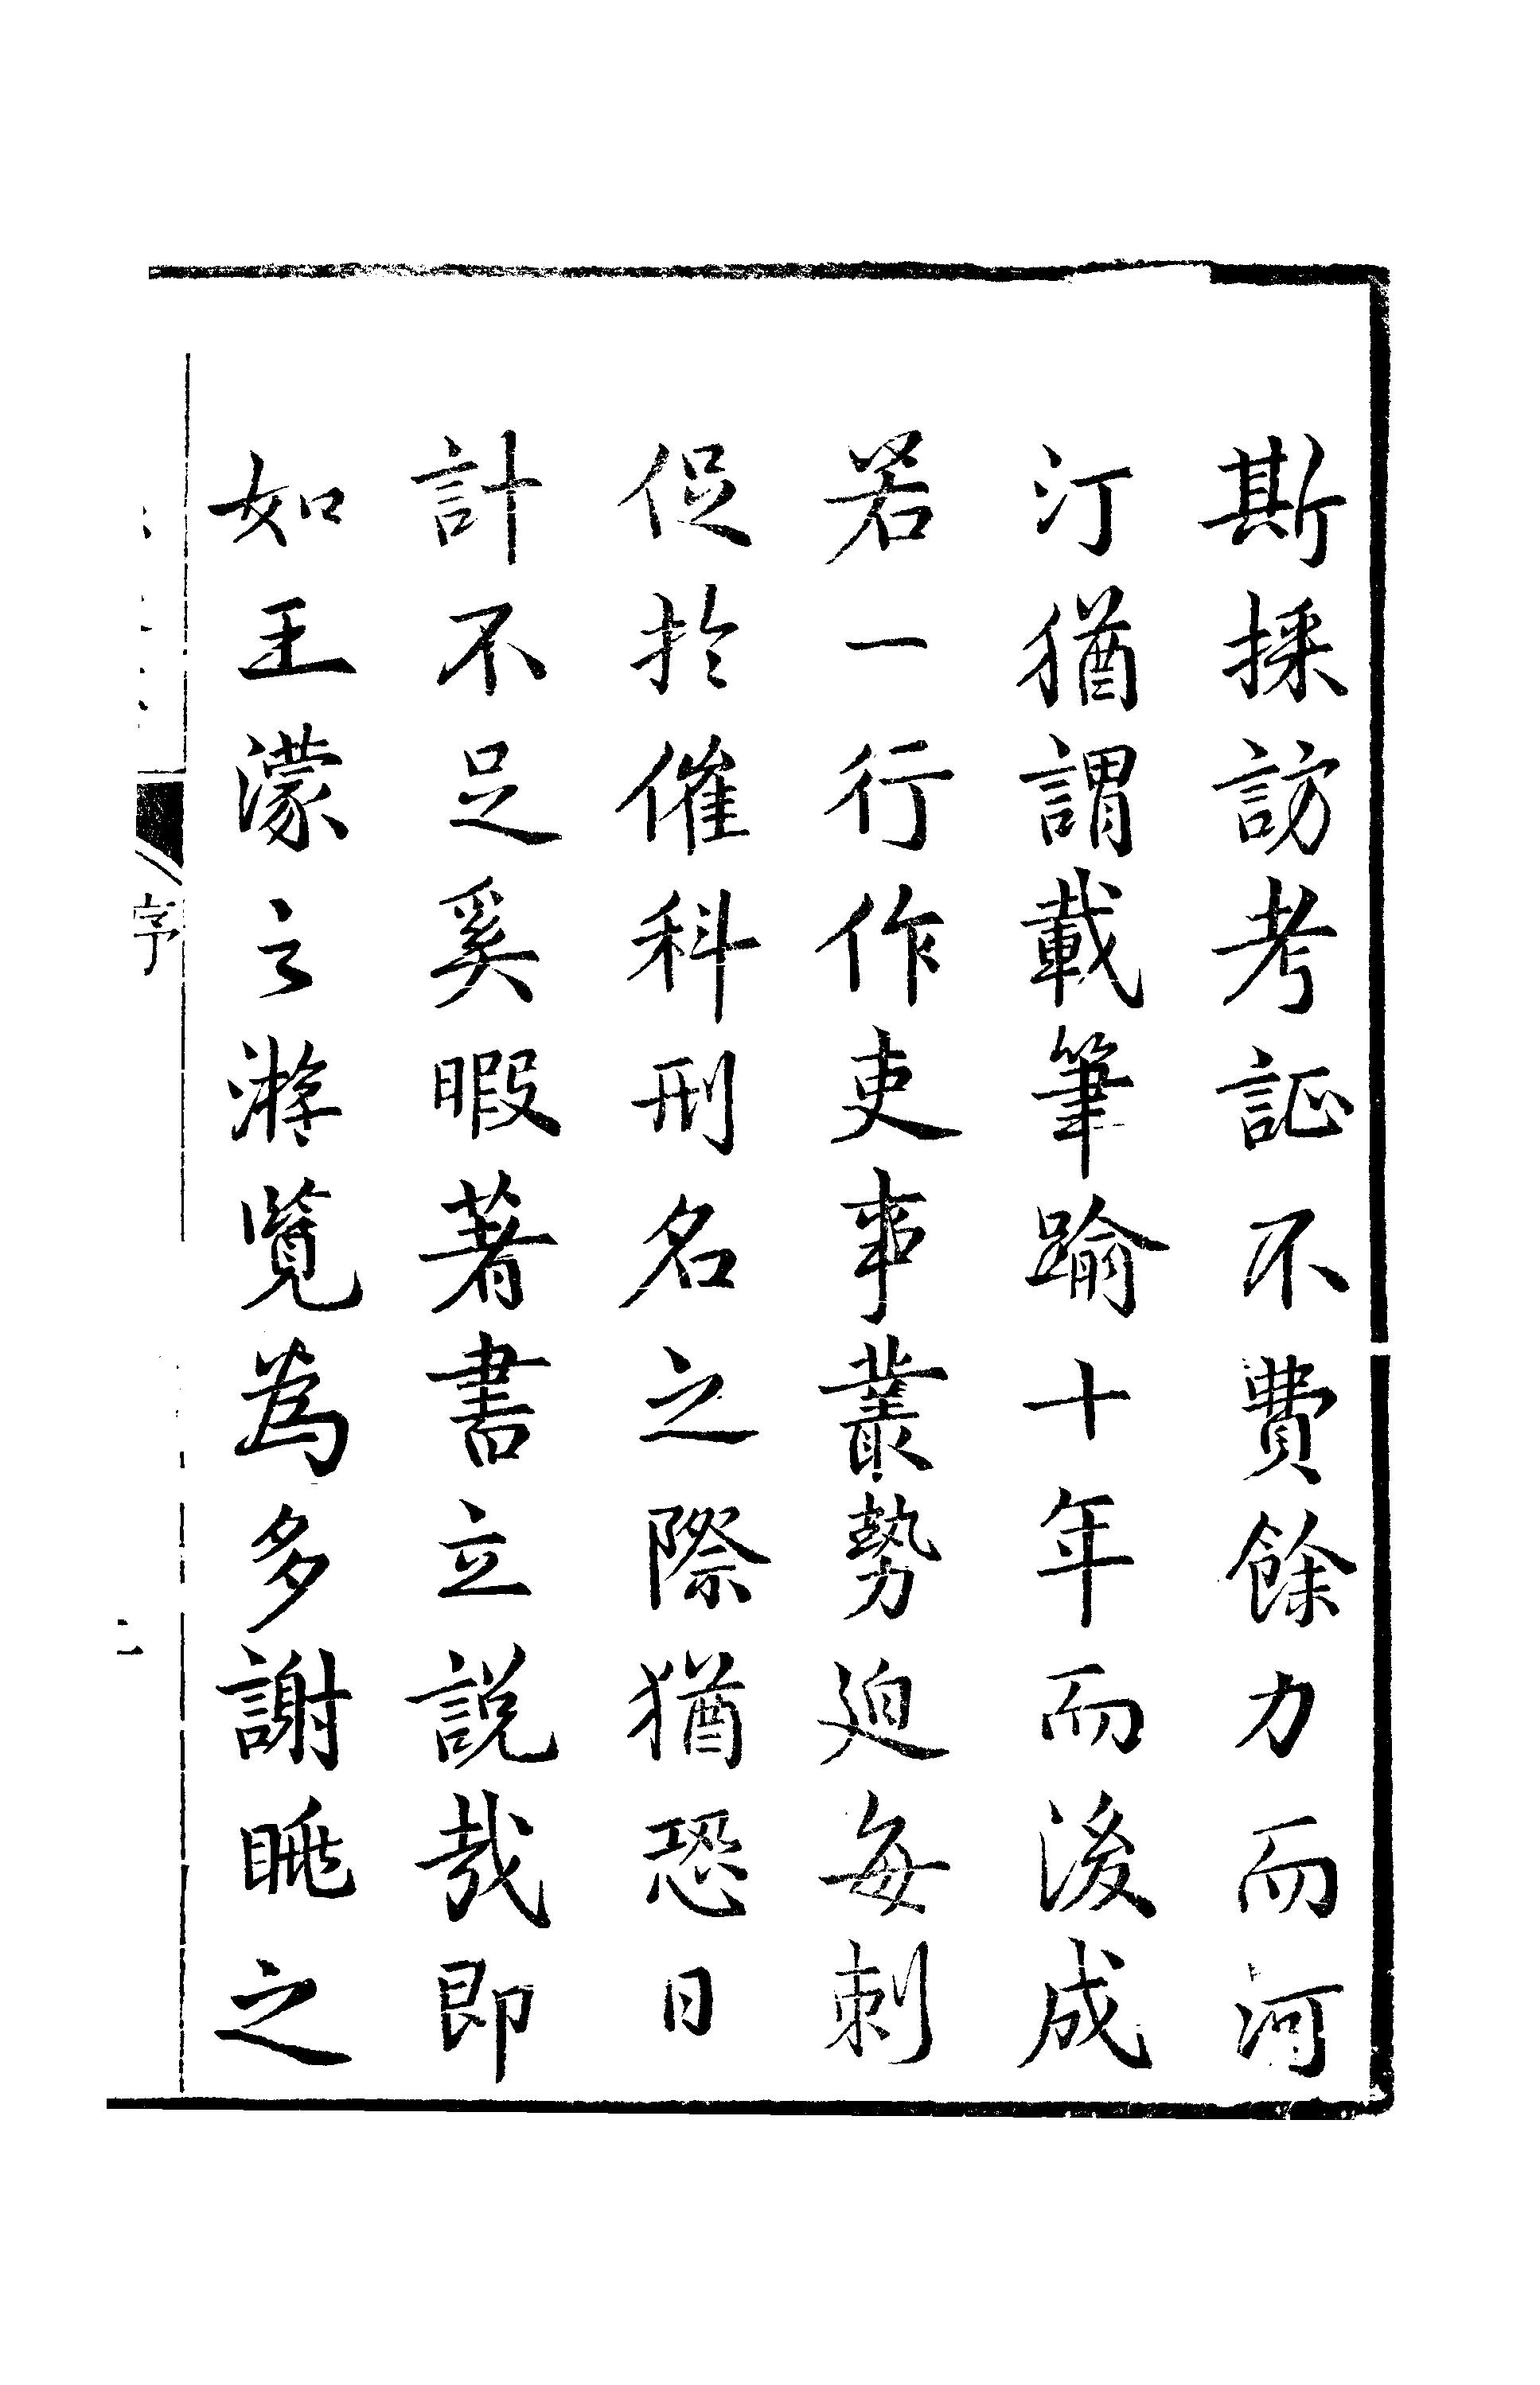 斯採訪考証不費餘力而河
汀猶謂載筆踰十年而後成
若一行作吏事叢勢迫每刺
促於催科刑名之際猶恐日
計不足奚暇著書立說哉即
如王濛之游覽為多謝眺之
序